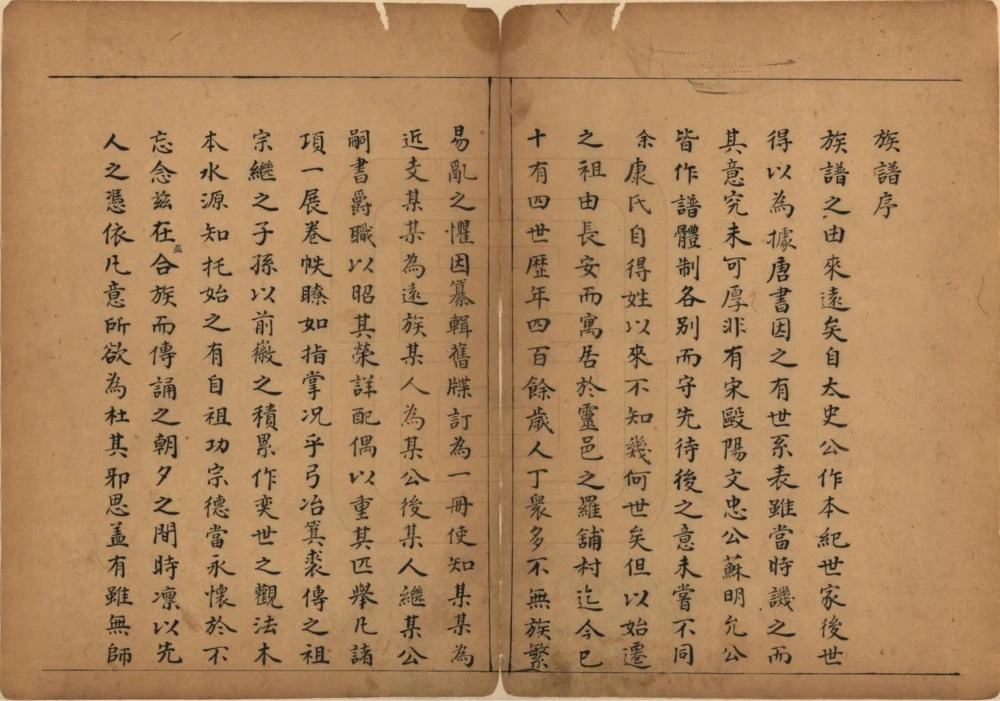 族譜序
族譜之由來遠矣自太史公作本紀世家後世
得以為據唐書因之有世系表雖當時譏之而
其意究未可厚非有宋毆陽文忠公蘇明允公
皆作譜體制各別而守先待後之意未嘗不同
余康氏自得姓以來不知幾何世矣但以始遷
之祖由長安而寓居於靈邑之羅舖村迄今已
十有四世歷年四百餘歲人丁衆多不無族繁
易亂之懼因纂輯舊牒訂為一冊使知某某為
近支某某為遠族某人為某公後某人繼某公
嗣書爵職以昭其榮詳配偶以重其匹舉凡諸
項一展卷帙瞭如指掌况乎弓冶箕裘傳之祖
宗繼之子孫以前徽之積累作奕世之觀法木
本水源知托始之有自祖功宗德當永懷於不
忘念兹在兹合族而傳誦之朝夕之間時凜以先
人之憑依凡意所欲為杜其邪思盖有雖無師